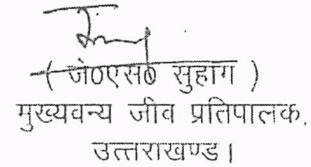 ( जे०एस० सुहाग )
मुख्यवन्य जीव प्रतिपालक,
उत्तराखण्ड।